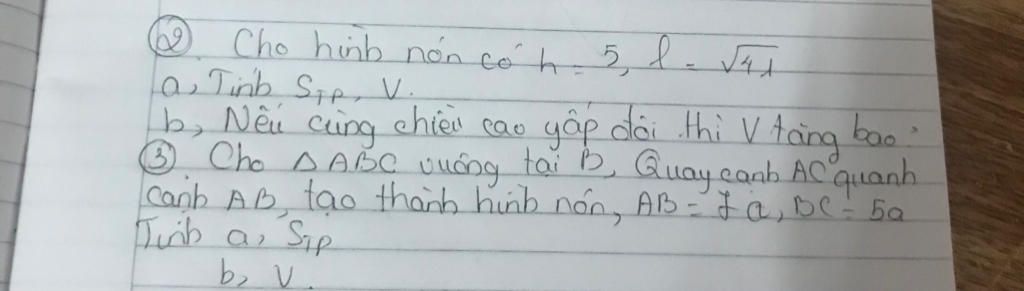 b2. Cho hình nón có h = 5, l = √41
a, Tính STP, V.
b, Nếu cùng chiều cao gấp đôi thì V tăng bao?
③ Cho △ABC vuông tại B, Quay cạnh AC quanh
cạnh AB, tạo thành hình nón, AB = 7a, BC = 5a
Tính a, STP
b, V.